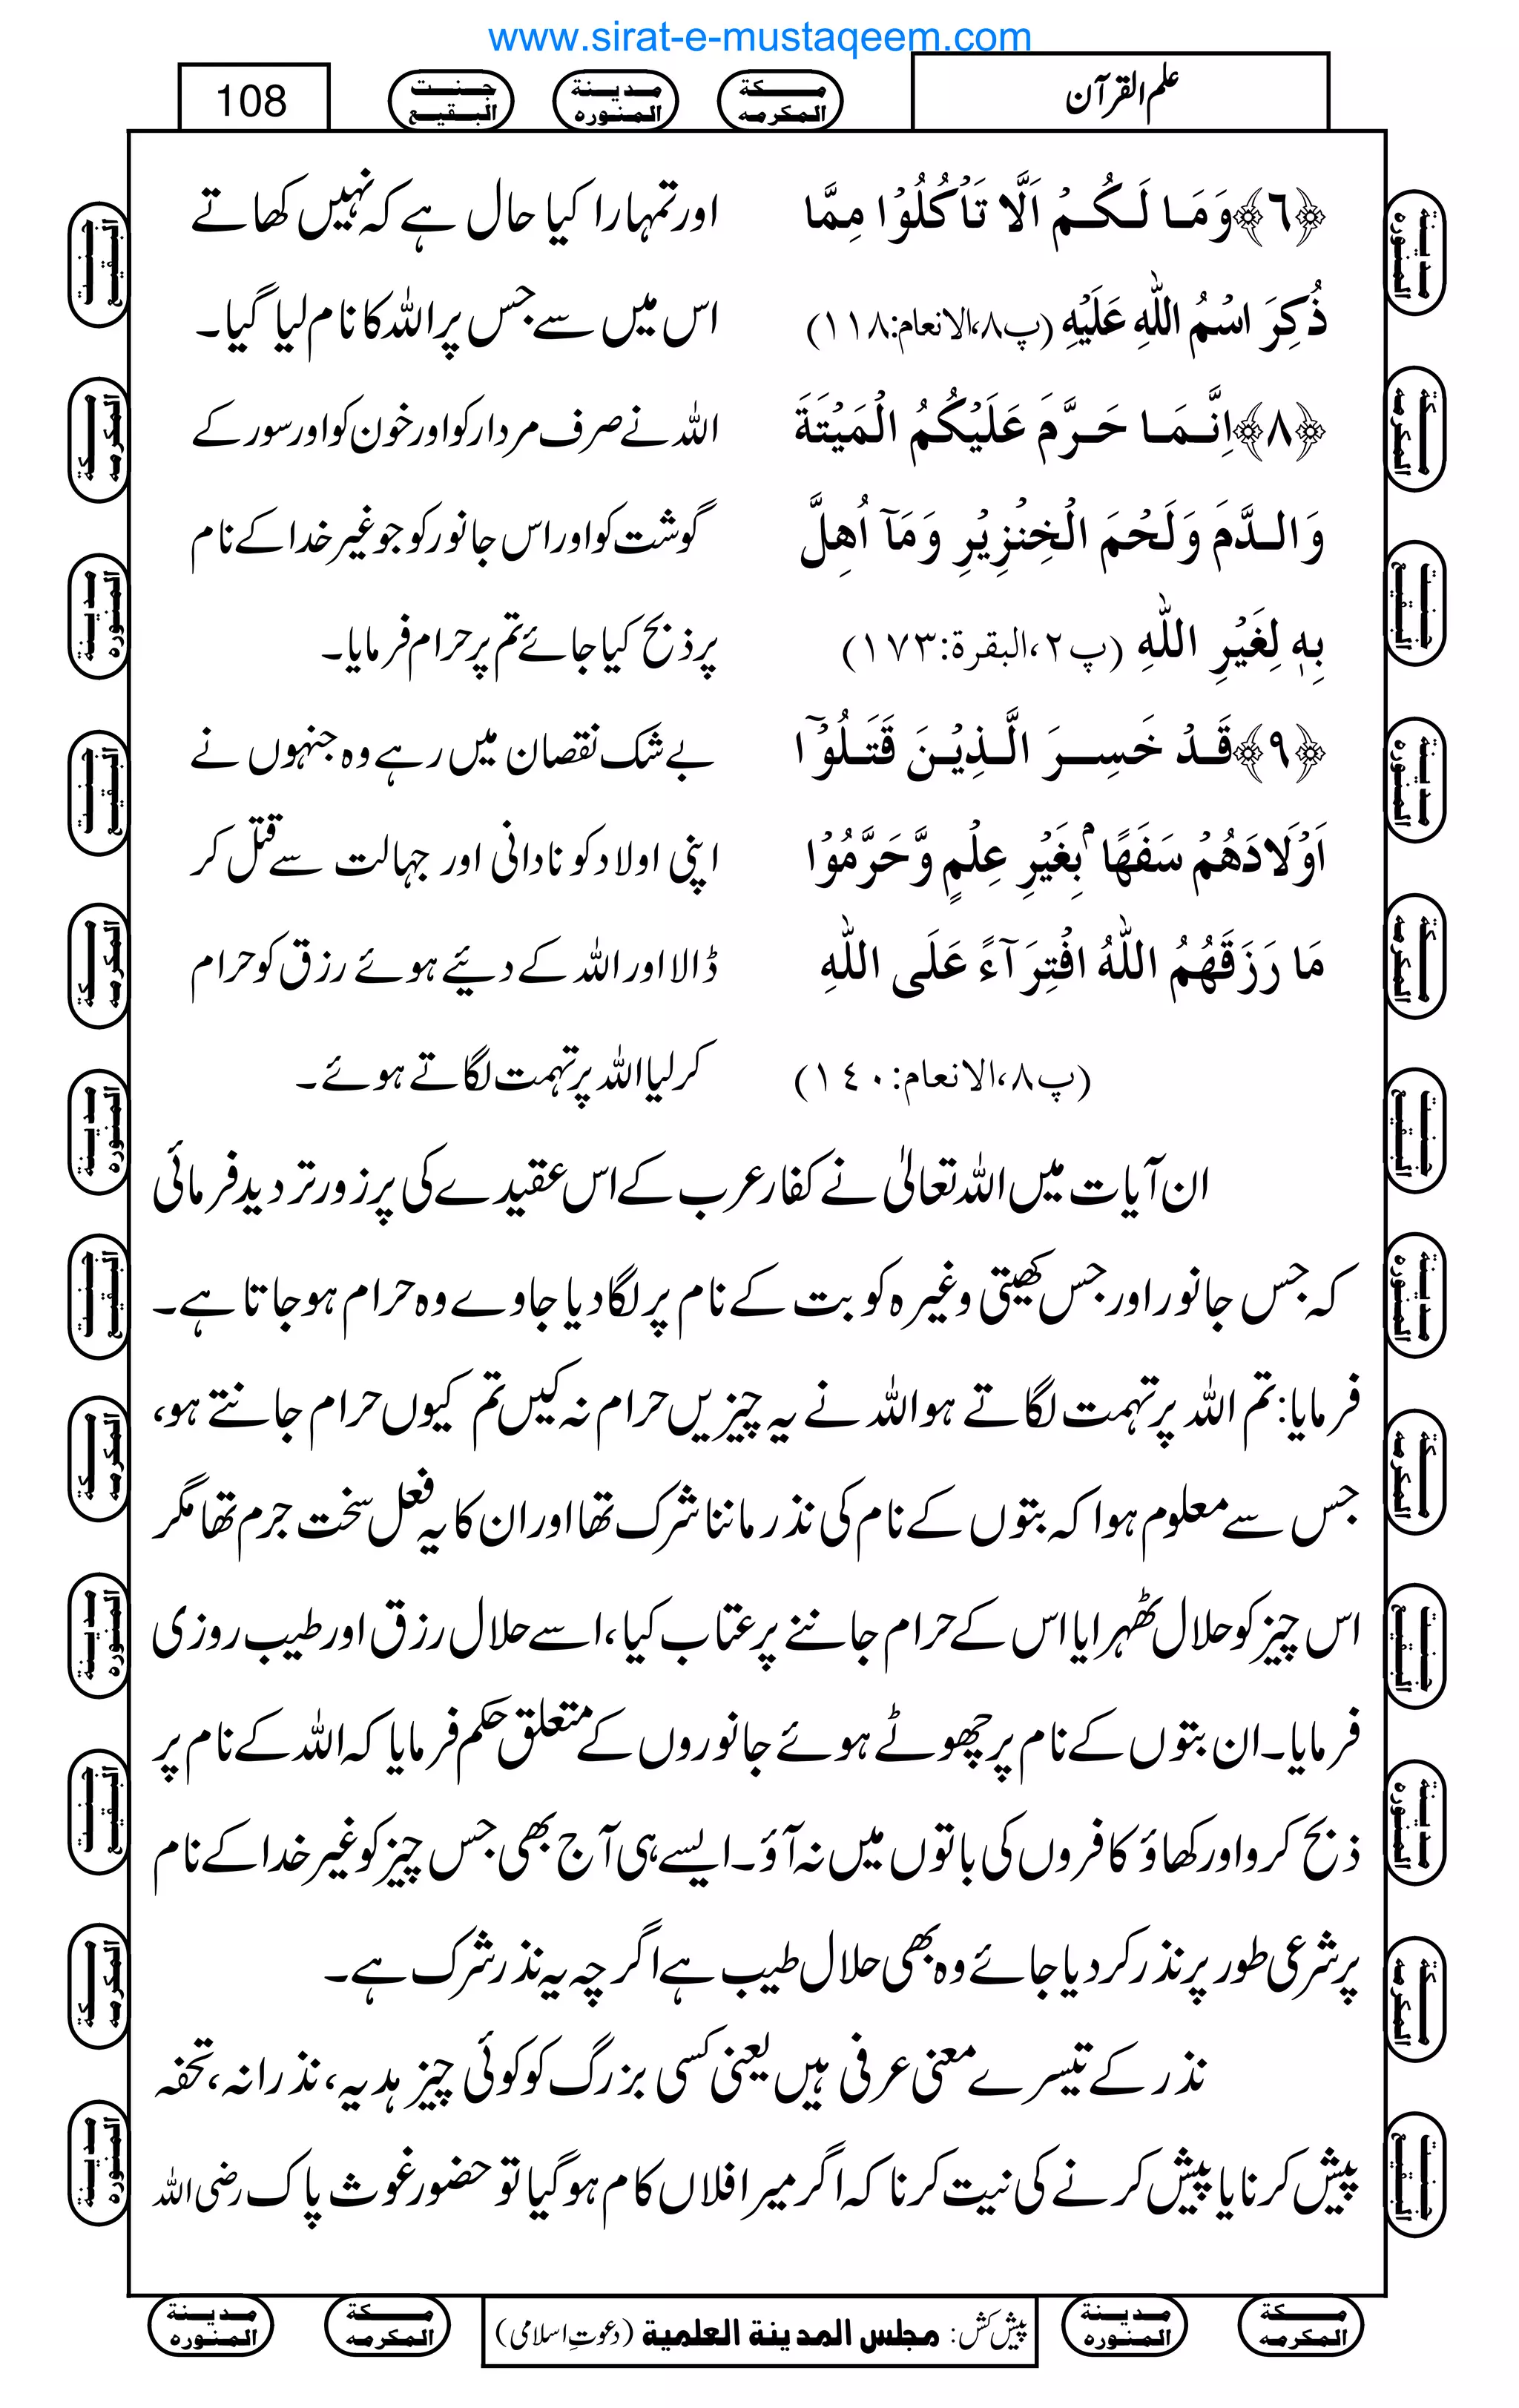 www.sirat-e-mustaqeem.com
علم القرآن
مكة المكرمه
مدينة المنوره
جنت البقيع
108
﴿٦﴾وَمَا لَكُمْ اَلَّا تَاْكُلُوْا مِمَّا
اور تمہارا کیا حال ہے کہ نہیں کھاتے
ذُكِرَ اسْمُ اللّٰهِ عَلَيْهِ (پ۸،الانعام:۱۱۸)
اس میں سے جس پر اللہ کا نام لیا گیا۔
﴿٨﴾اِنَّمَا حَرَّمَ عَلَيْكُمُ الْمَيْتَةَ
اللہ نے صرف مردار کو اور خون کو اور سور کے
وَالدَّمَ وَلَحْمَ الْخِنْزِيْرِ وَمَآ اُهِلَّ
گوشت کو اور اس جانور کو جو غیر خدا کے نام
بِهٖ لِغَيْرِ اللّٰهِ (پ۲،البقرة:۱۷۳)
پر ذبح کیا جائے تم پر حرام فرمایا۔
﴿٩﴾قَدْ خَسِرَ الَّذِيْنَ قَتَلُوْٓا
بے شک نقصان میں رہے وہ جنہوں نے
اَوْلَادَهُمْ سَفَهًاۢ بِغَيْرِ عِلْمٍ وَّحَرَّمُوْا
اپنی اولاد کو نادانی اور جہالت سے قتل کر
مَا رَزَقَهُمُ اللّٰهُ افْتِرَآءً عَلَى اللّٰهِ
ڈالا اور اللہ کے دیئے ہوئے رزق کو حرام
(پ۸،الانعام:۱٤۰)
کرلیا اللہ پر تہمت لگاتے ہوئے۔
ان آیات میں اللہ تعالیٰ نے کفار عرب کے اس عقیدے کی پرزور تردید فرمائی
کہ جس جانور اور جس کھیتی وغیرہ کو بت کے نام پر لگادیا جاوے وہ حرام ہوجاتا ہے۔
فرمایا: تم اللہ پر تہمت لگاتے ہو اللہ نے یہ چیزیں حرام نہ کیں تم کیوں حرام جانتے ہو،
جس سے معلوم ہوا کہ بتوں کے نام کی نذر ماننا شرک تھا اور ان کا یہ فعل سخت جرم تھا مگر
اس چیز کو حلال ٹھہرایا اس کے حرام جاننے پر عتاب کیا، اسے حلال رزق اور طیب روزی
فرمایا۔ ان بتوں کے نام پر چھوٹے ہوئے جانوروں کے متعلق حکم فرمایا کہ اللہ کے نام پر
ذبح کرو اور کھاؤ کافروں کی باتوں میں نہ آؤ۔ ایسے ہی آج بھی جس چیز کو غیر خدا کے نام
پر شرعی طور پر نذر کردیا جائے وہ بھی حلال طیب ہے اگرچہ یہ نذر شرک ہے۔
نذر کے تیسرے معنی عرفی ہیں یعنی کسی بزرگ کو کوئی چیز ہدیہ، نذرانہ، تحفہ
پیش کرنا یا پیش کرنے کی نیت کرنا کہ اگر میرا فلاں کام ہوگیا تو حضور غوث پاک رضی اللہ
پیش کش: مجلس المدينة العلمية (دعوتِ اسلامی)